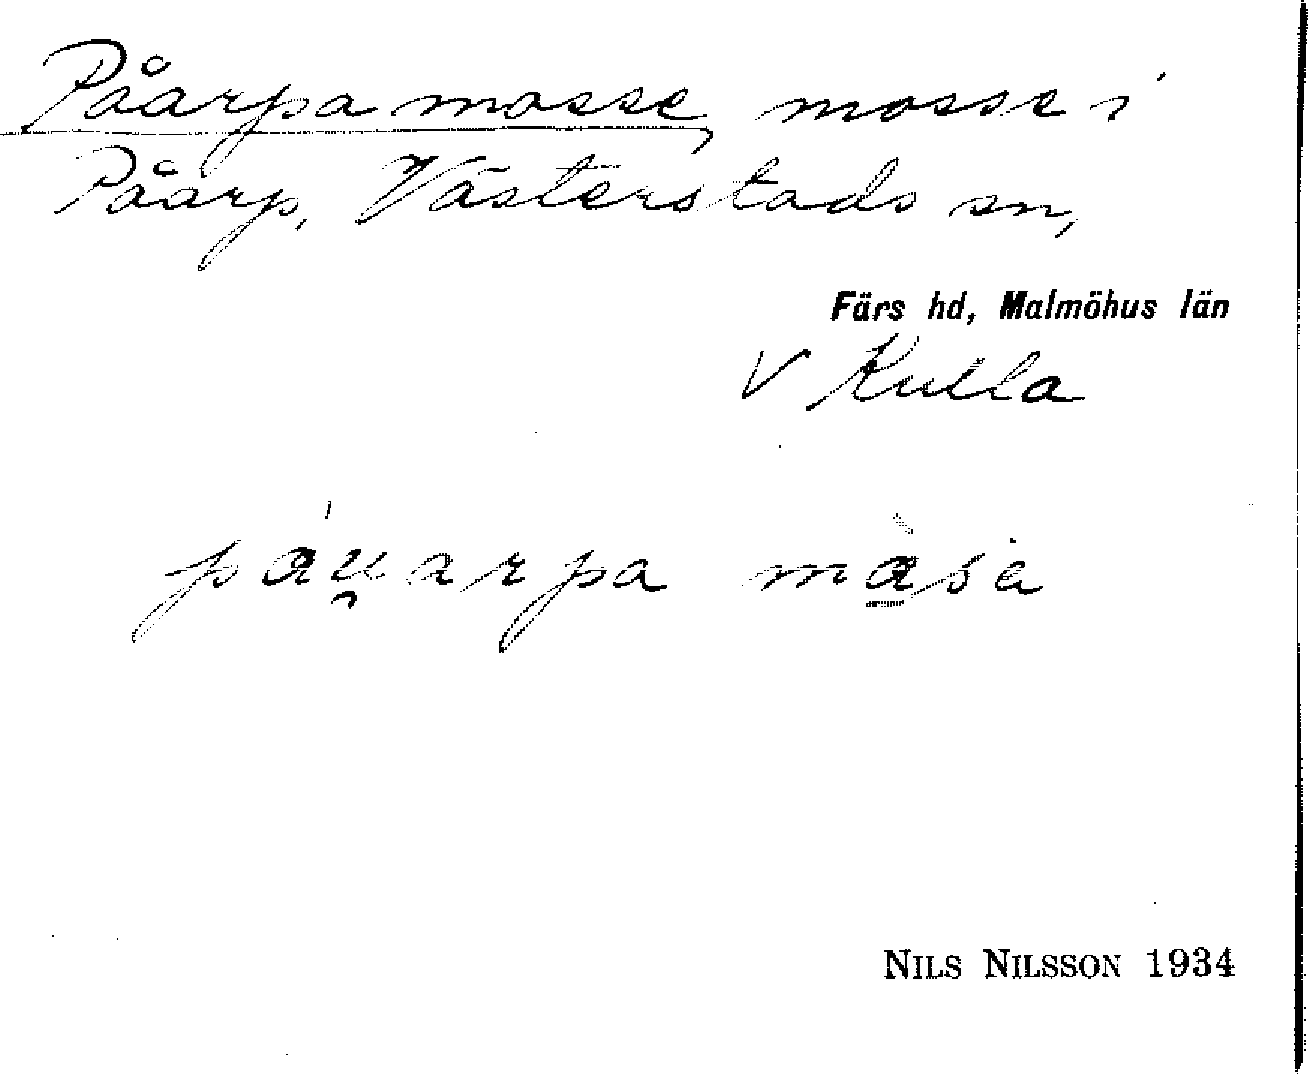 Påarpa mosse, mosse i
Påarp, Västerstads sn,
Färs hd, Malmöhus län
V Kulla
páu̯arpa màsa
NILS NILSSON 1934